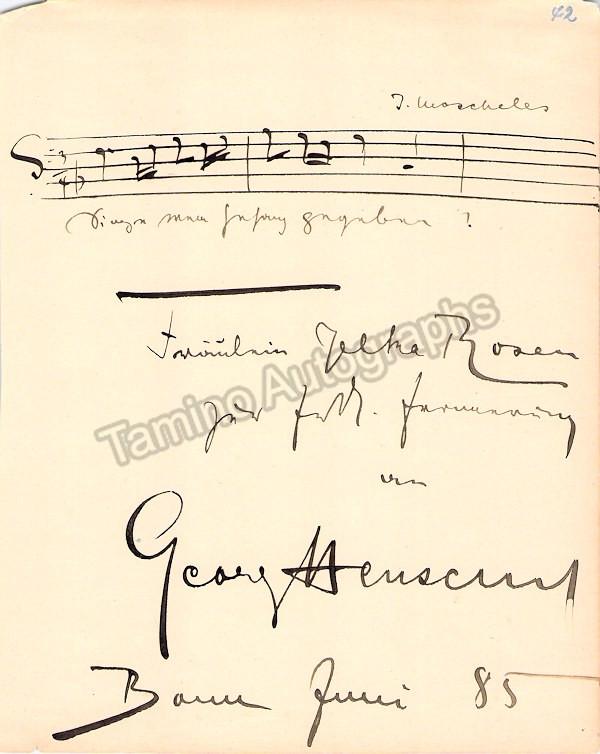 42
I. Moscheles
3
4
gegeben ?
Fräulein Jelka Rosen
zur frdl. Erinnerung
an
Georg Henschel
Bonn Juni 85
Tamino Autographs